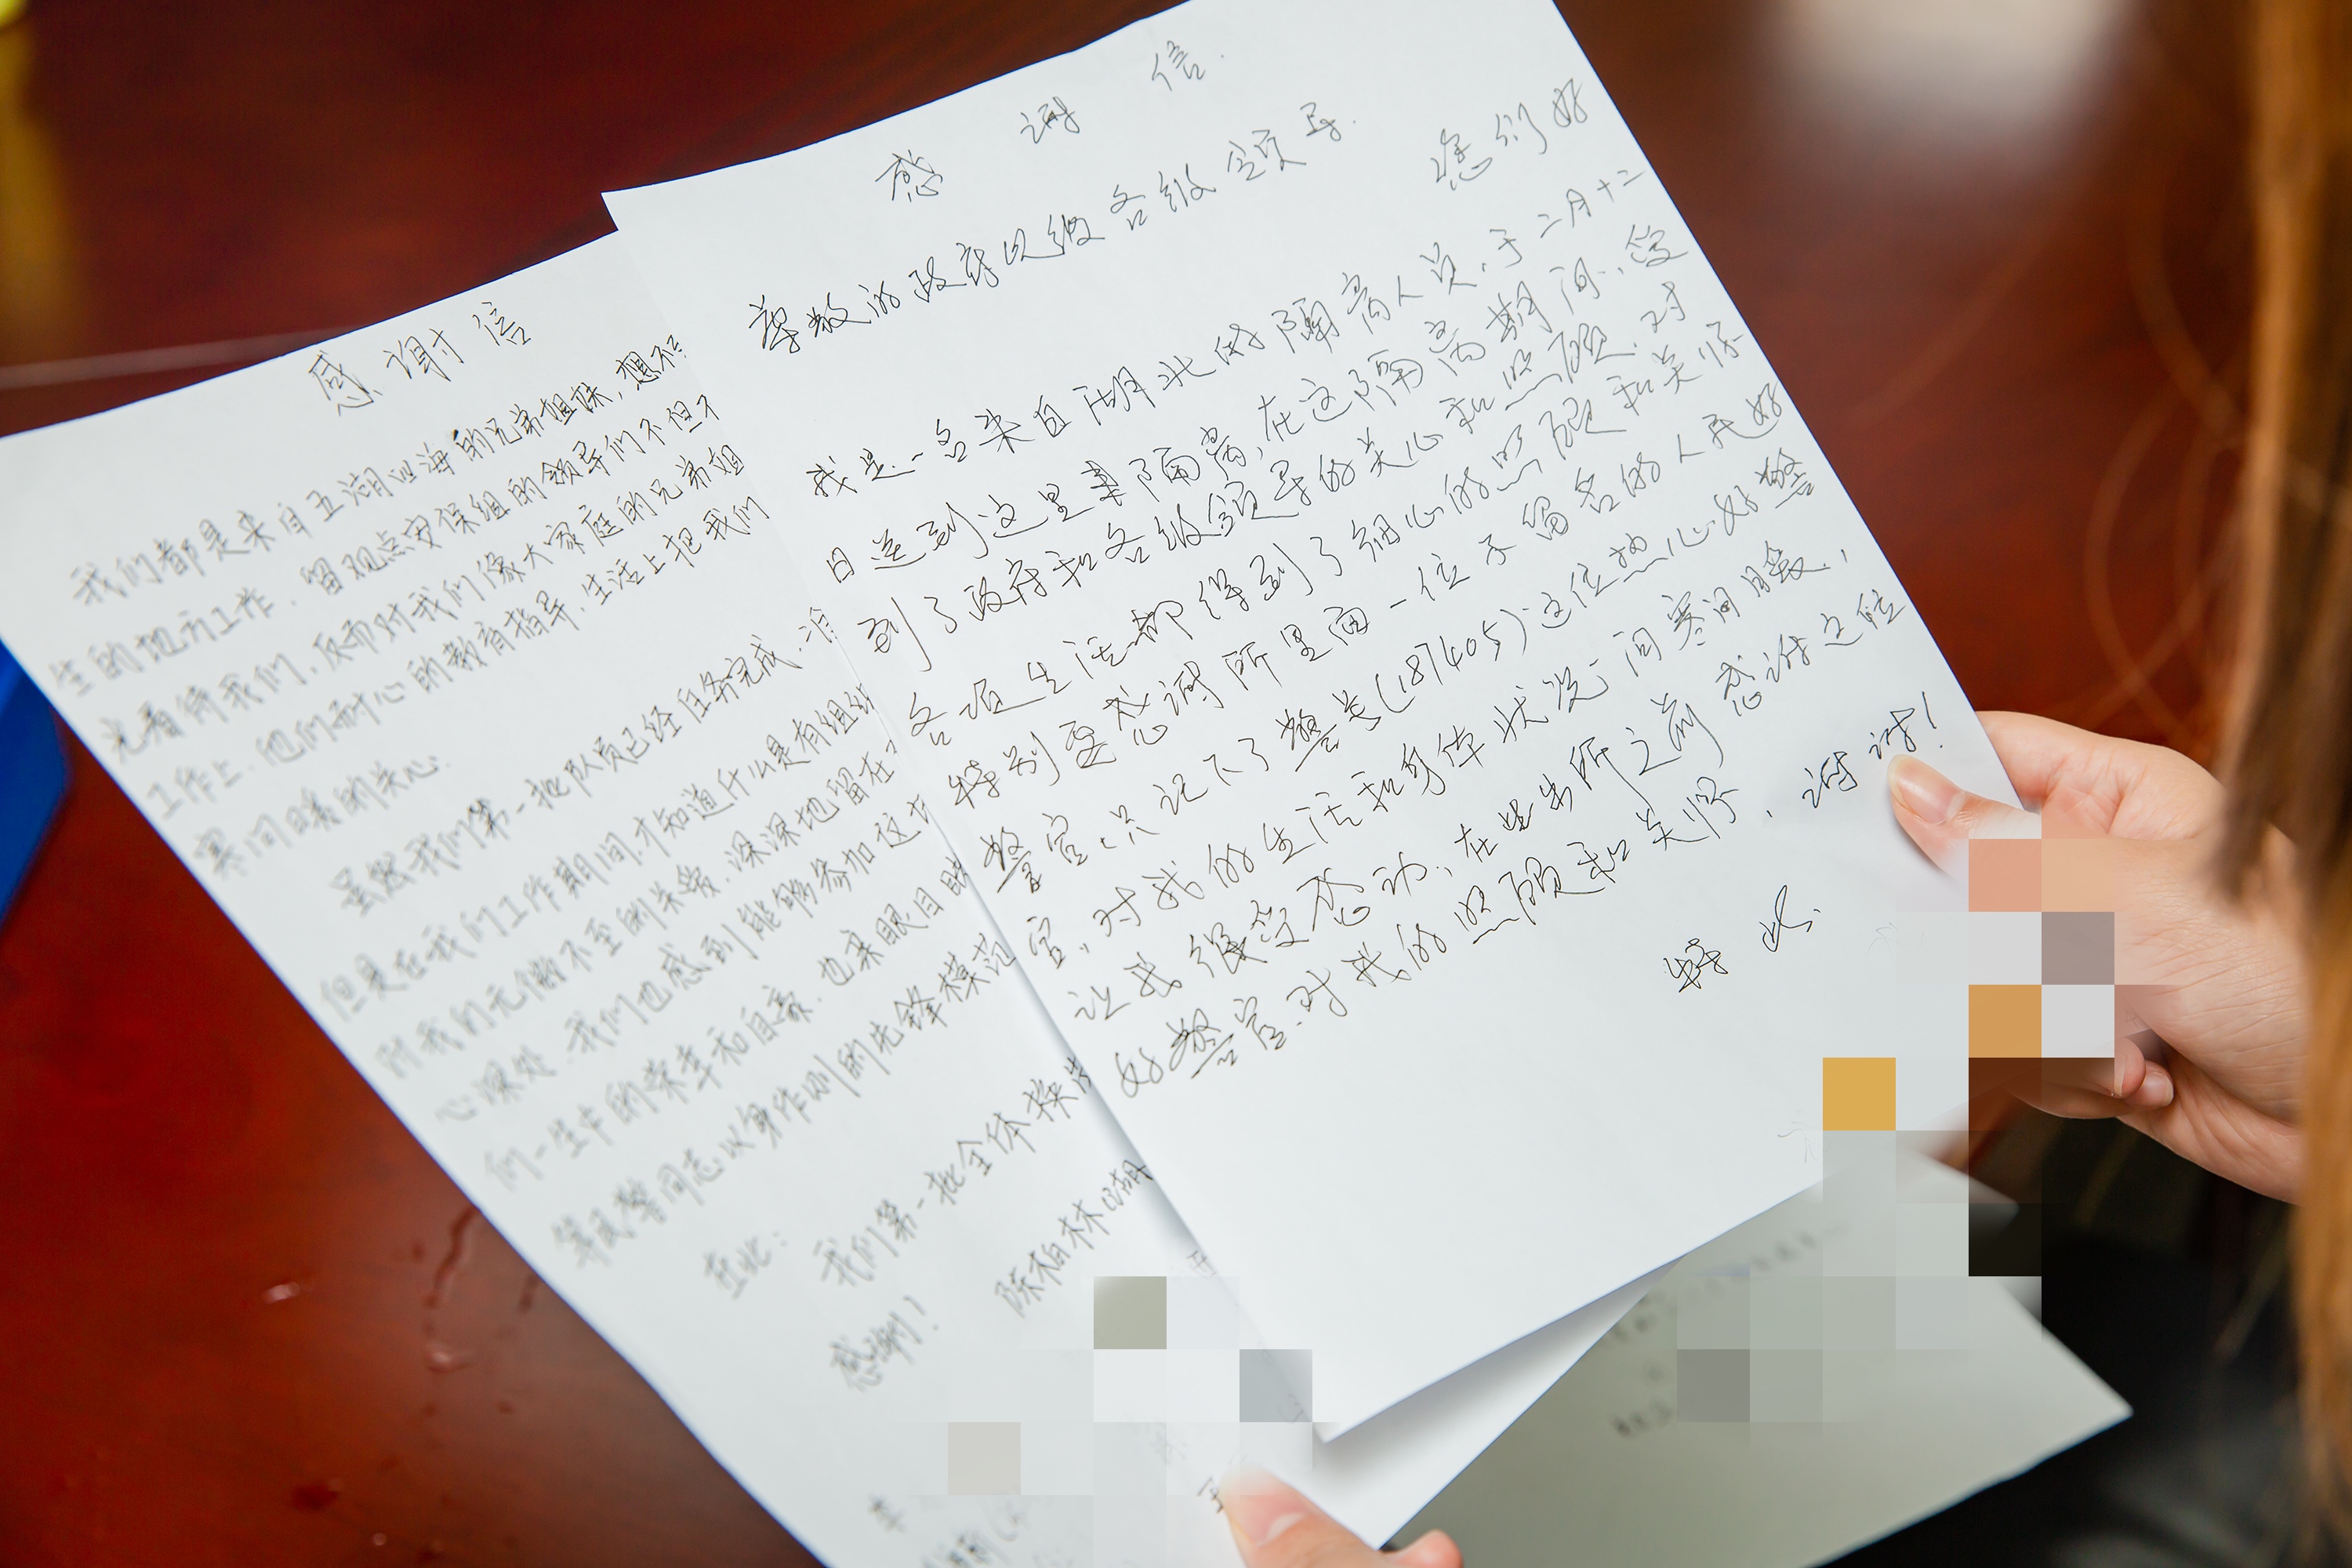 感谢信
我们都是来自五湖四海的兄弟姐妹,想不
生的地方工作.留观点安保组的领导们不但不
光看待我们.反而对我们像大家庭的兄弟姐
工作上.他们耐心的教育指导.生活上把我们
寒问暖的关心.
虽然我们第一批队员已经任务完成.准
但是在我们工作期间,才知道什么是有组织
对我们无微不至的关爱.深深地留在
心深处.我们也感到能够参加这
们一生中的荣幸和自豪.也亲眼目睹
等民警同志以身作则的先锋模范
在此:
我们第一批全体
感谢!
陈柏林
感谢信.
尊敬的政府以级各级领导.
您们好
我是一名来自湖北的隔离人员,于二月十二
日送到这里来隔离,在这隔离期间,受
到了政府和各级领导的关心和照顾.对
各项生活都得到了细心的照顾和关怀
特别要感谢所里面一位不留名的人民好
警官,只记下了警号(187405)这位热心好警
官,对我的生活和身体状况,问寒问暖,
让我很受感动,在出所之前感谢这些
好警官.对我的照顾和关怀,谢谢!
特此.